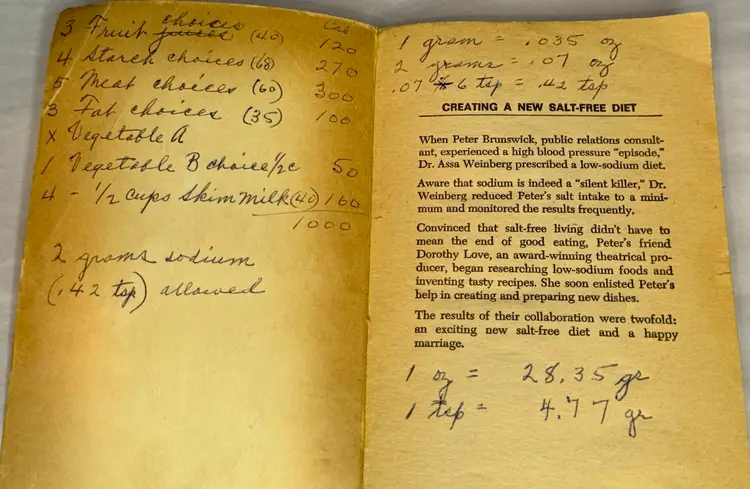 choices Cal
3 Fruit juices (40) 120
4 Starch choices (68) 270
5 Meat choices (60) 300
3 Fat choices (35) 100
x Vegetable A
1 Vegetable B choice 1/2c 50
4 - 1/2 cups Skim Milk (40) 160
1000
2 grams sodium
(.42 tsp) allowed
1 gram = .035 oz
2 grams = .07 oz
.07 x 6 tsp = .42 tsp
CREATING A NEW SALT-FREE DIET
When Peter Brunswick, public relations consult-
ant, experienced a high blood pressure “episode,”
Dr. Assa Weinberg prescribed a low-sodium diet.
Aware that sodium is indeed a “silent killer,” Dr.
Weinberg reduced Peter’s salt intake to a mini-
mum and monitored the results frequently.
Convinced that salt-free living didn’t have to
mean the end of good eating, Peter’s friend
Dorothy Love, an award-winning theatrical pro-
ducer, began researching low-sodium foods and
inventing tasty recipes. She soon enlisted Peter’s
help in creating and preparing new dishes.
The results of their collaboration were twofold:
an exciting new salt-free diet and a happy
marriage.
1 oz = 28.35 gr
1 tsp = 4.77 gr